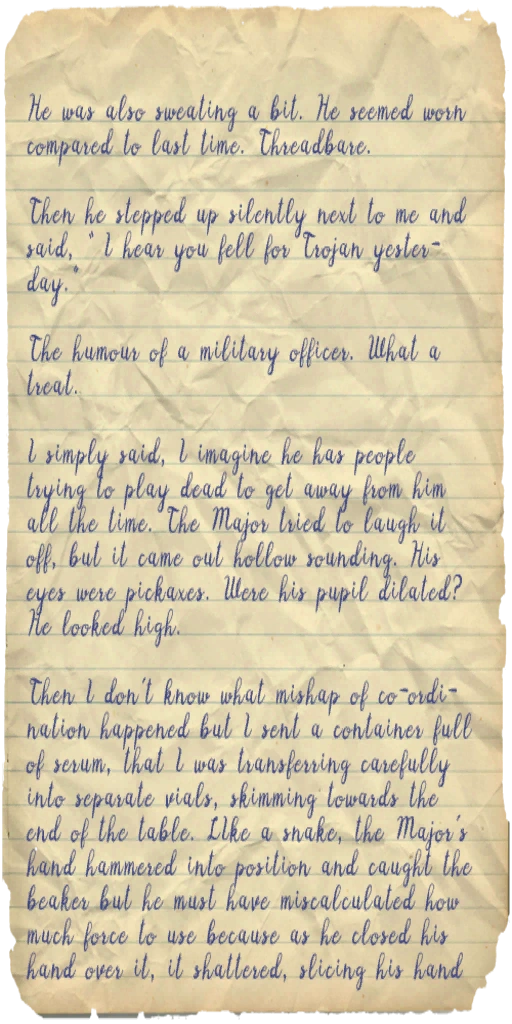 He was also sweating a bit. He seemed worn
compared to last time. Threadbare.
Then he stepped up silently next to me and
said, "I hear you fell for Trojan yester-
day."
The humour of a military officer. What a
treat.
I simply said, I imagine he has people
trying to play dead to get away from him
all the time. The Major tried to laugh it
off, but it came out hollow sounding. His
eyes were pickaxes. Were his pupil dilated?
He looked high.
Then I don't know what mishap of co-ordi-
nation happened but I sent a container full
of serum, that I was transferring carefully
into separate vials, skimming towards the
end of the table. Like a snake, the Major's
hand hammered into position and caught the
beaker but he must have miscalculated how
much force to use because as he closed his
hand over it, it shattered, slicing his hand